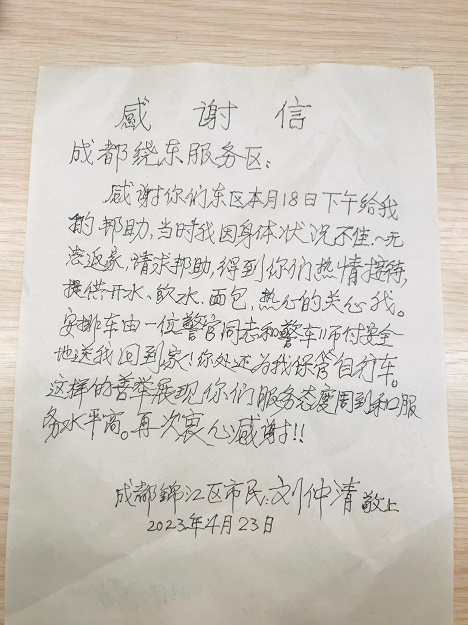 感谢信
成都绕东服务区:
感谢你们东区本月18日下午给我
的帮助,当时我因身体状况不佳~无
法返家,请求帮助,得到你们热情接待,
提供开水、饮水、面包,热心的关心我。
安排车由一位警官同志和警车师付安全
地送我回到家!你处还为我保管自行车。
这样的善举展现你们服务态度周到和服
务水平高。再次衷心感谢!!
成都錦江区市民:刘仲清敬上
2023年4月23日